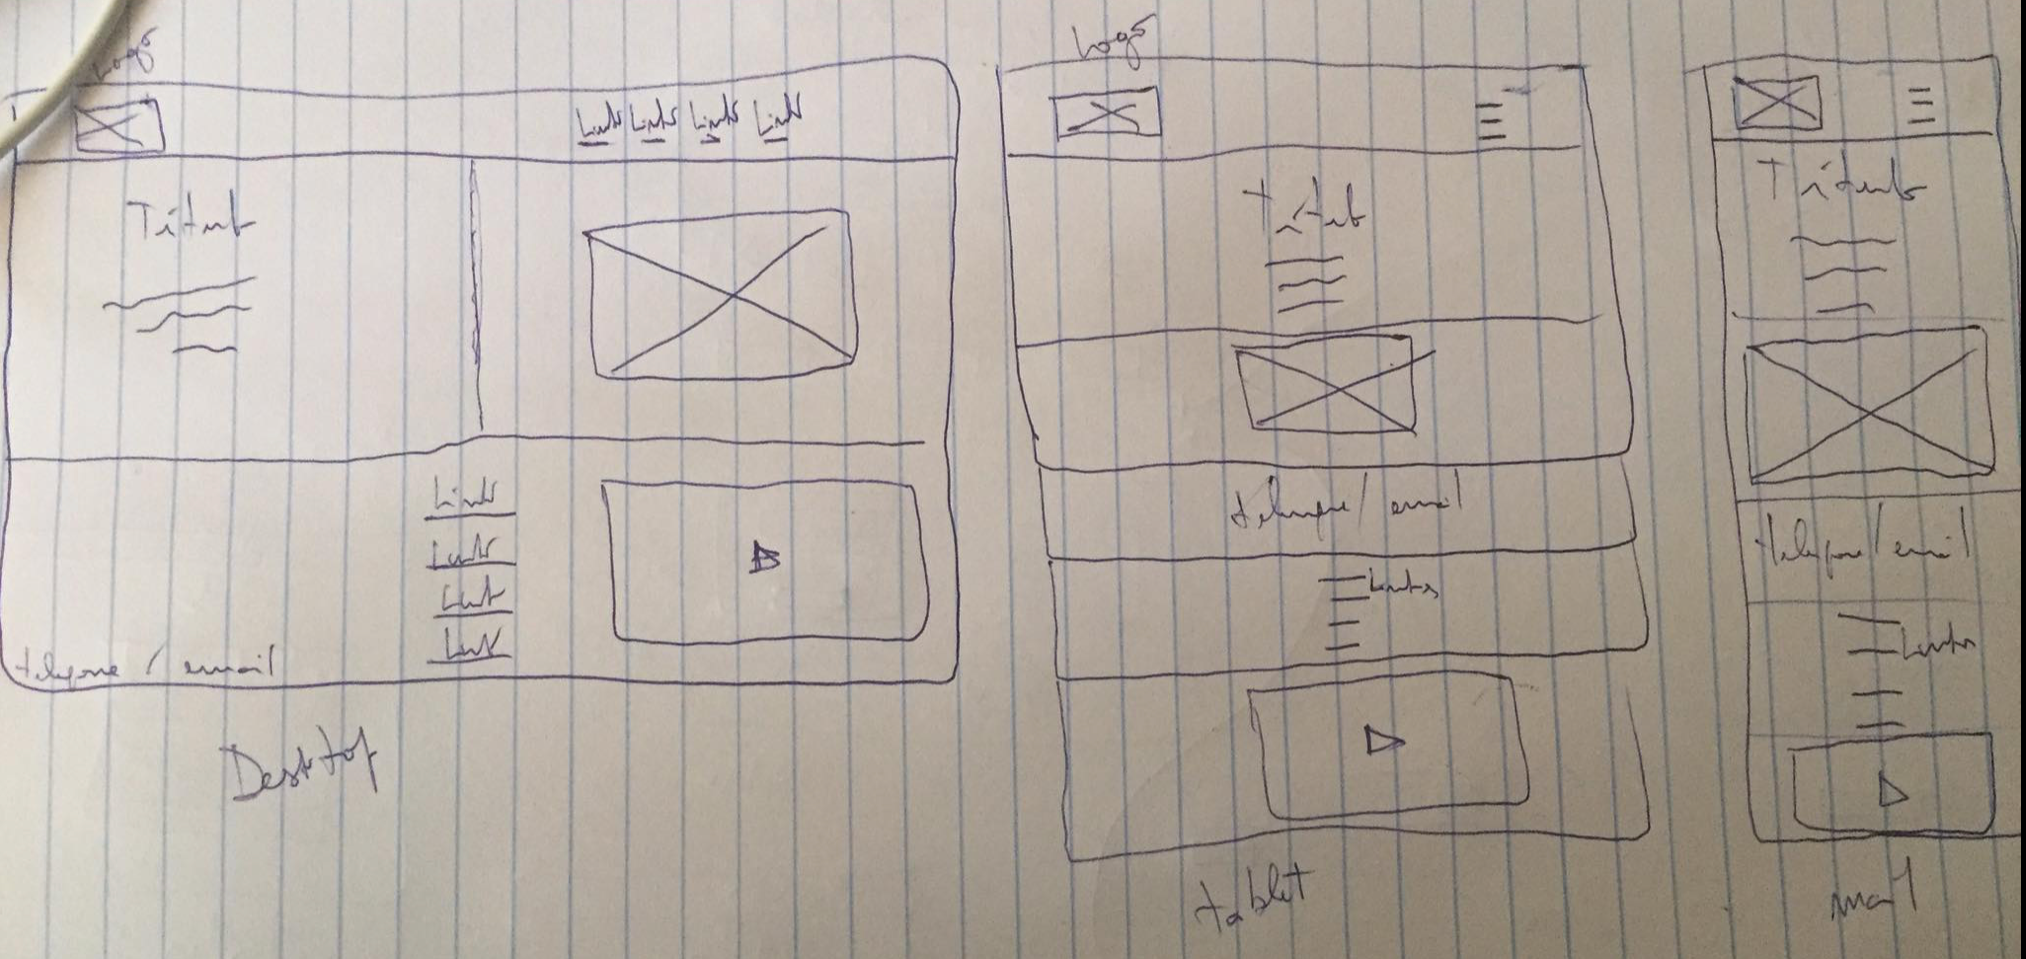 Logo
Links Links Links Links
Título
Link
Link
Link
Link
telefone / email
Desktop
Logo
Título
telefone / email
Links
tablet
Título
telefone / email
Links